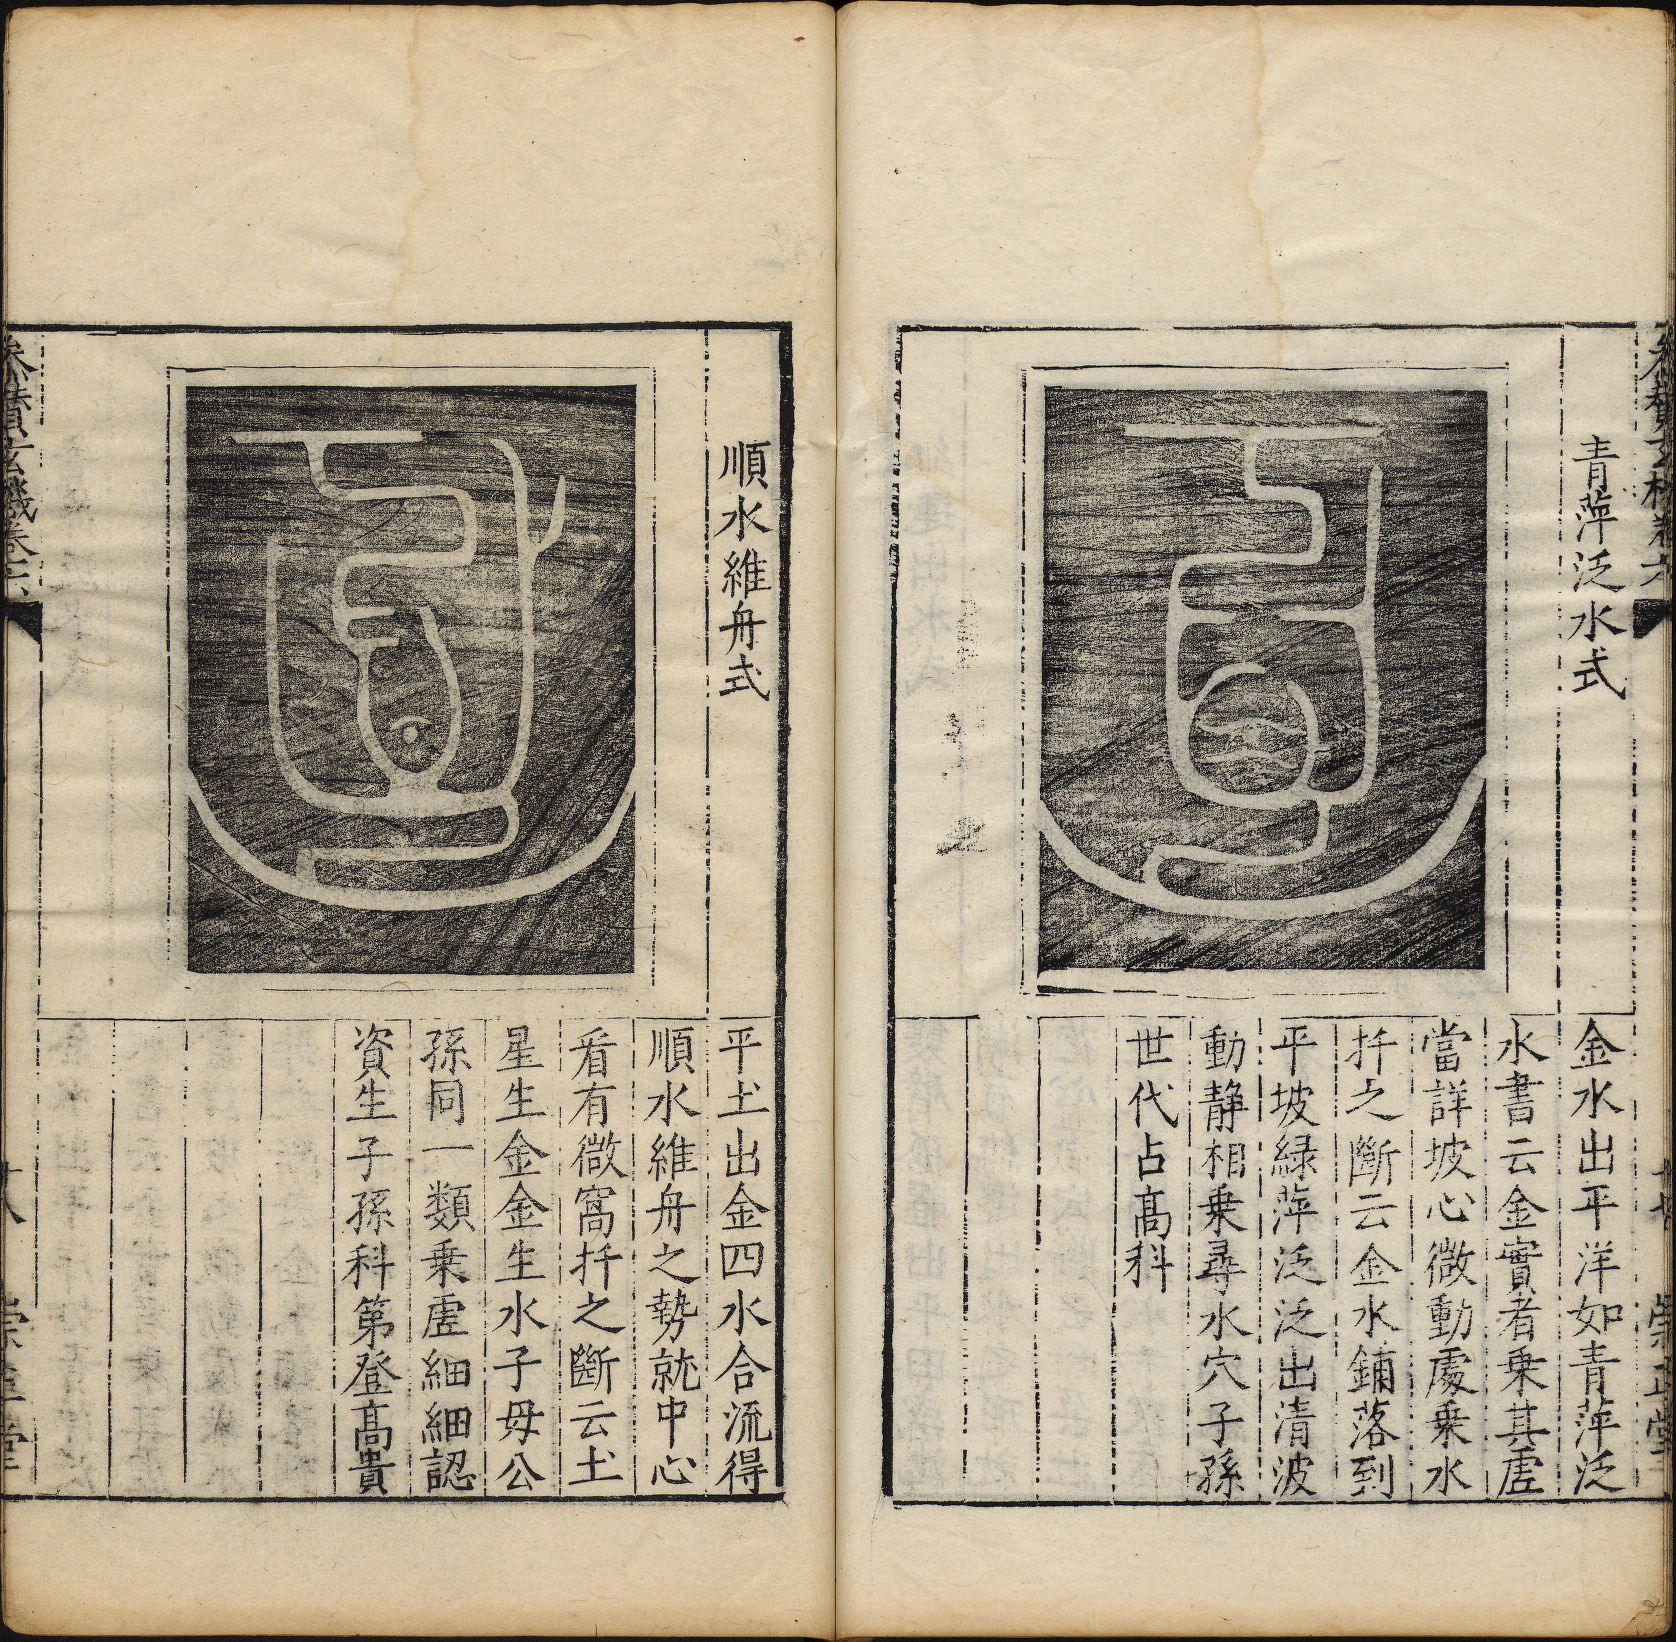 青萍泛水式
金水出平洋如青萍泛
水書云金實者乗其虗
當詳坡心微動處乗水
扦之斷云金水鋪落到
平坡緑萍泛泛出清波
動静相乗尋水穴子孫
世代占髙科
順水維舟式
平圡出金四水合流得
順水維舟之勢就中心
看有微窩扦之斷云圡
星生金金生水子母公
孫同一類乗虗細細認
資生子孫科第登髙貴